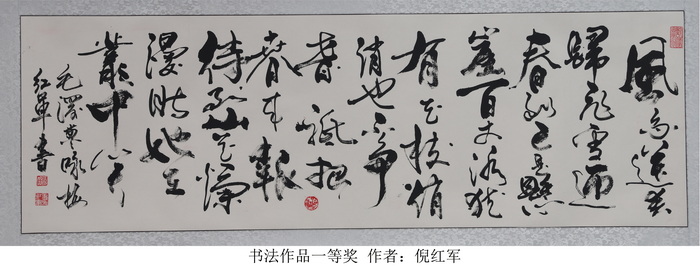 風雨送春
歸飛雪迎
春到已是懸
崖百丈冰犹
有花枝俏
俏也不争
春祇把
春来報
待到山花爛
漫时她在
叢中笑
毛澤東咏梅
红軍書
书法作品一等奖 作者：倪红军